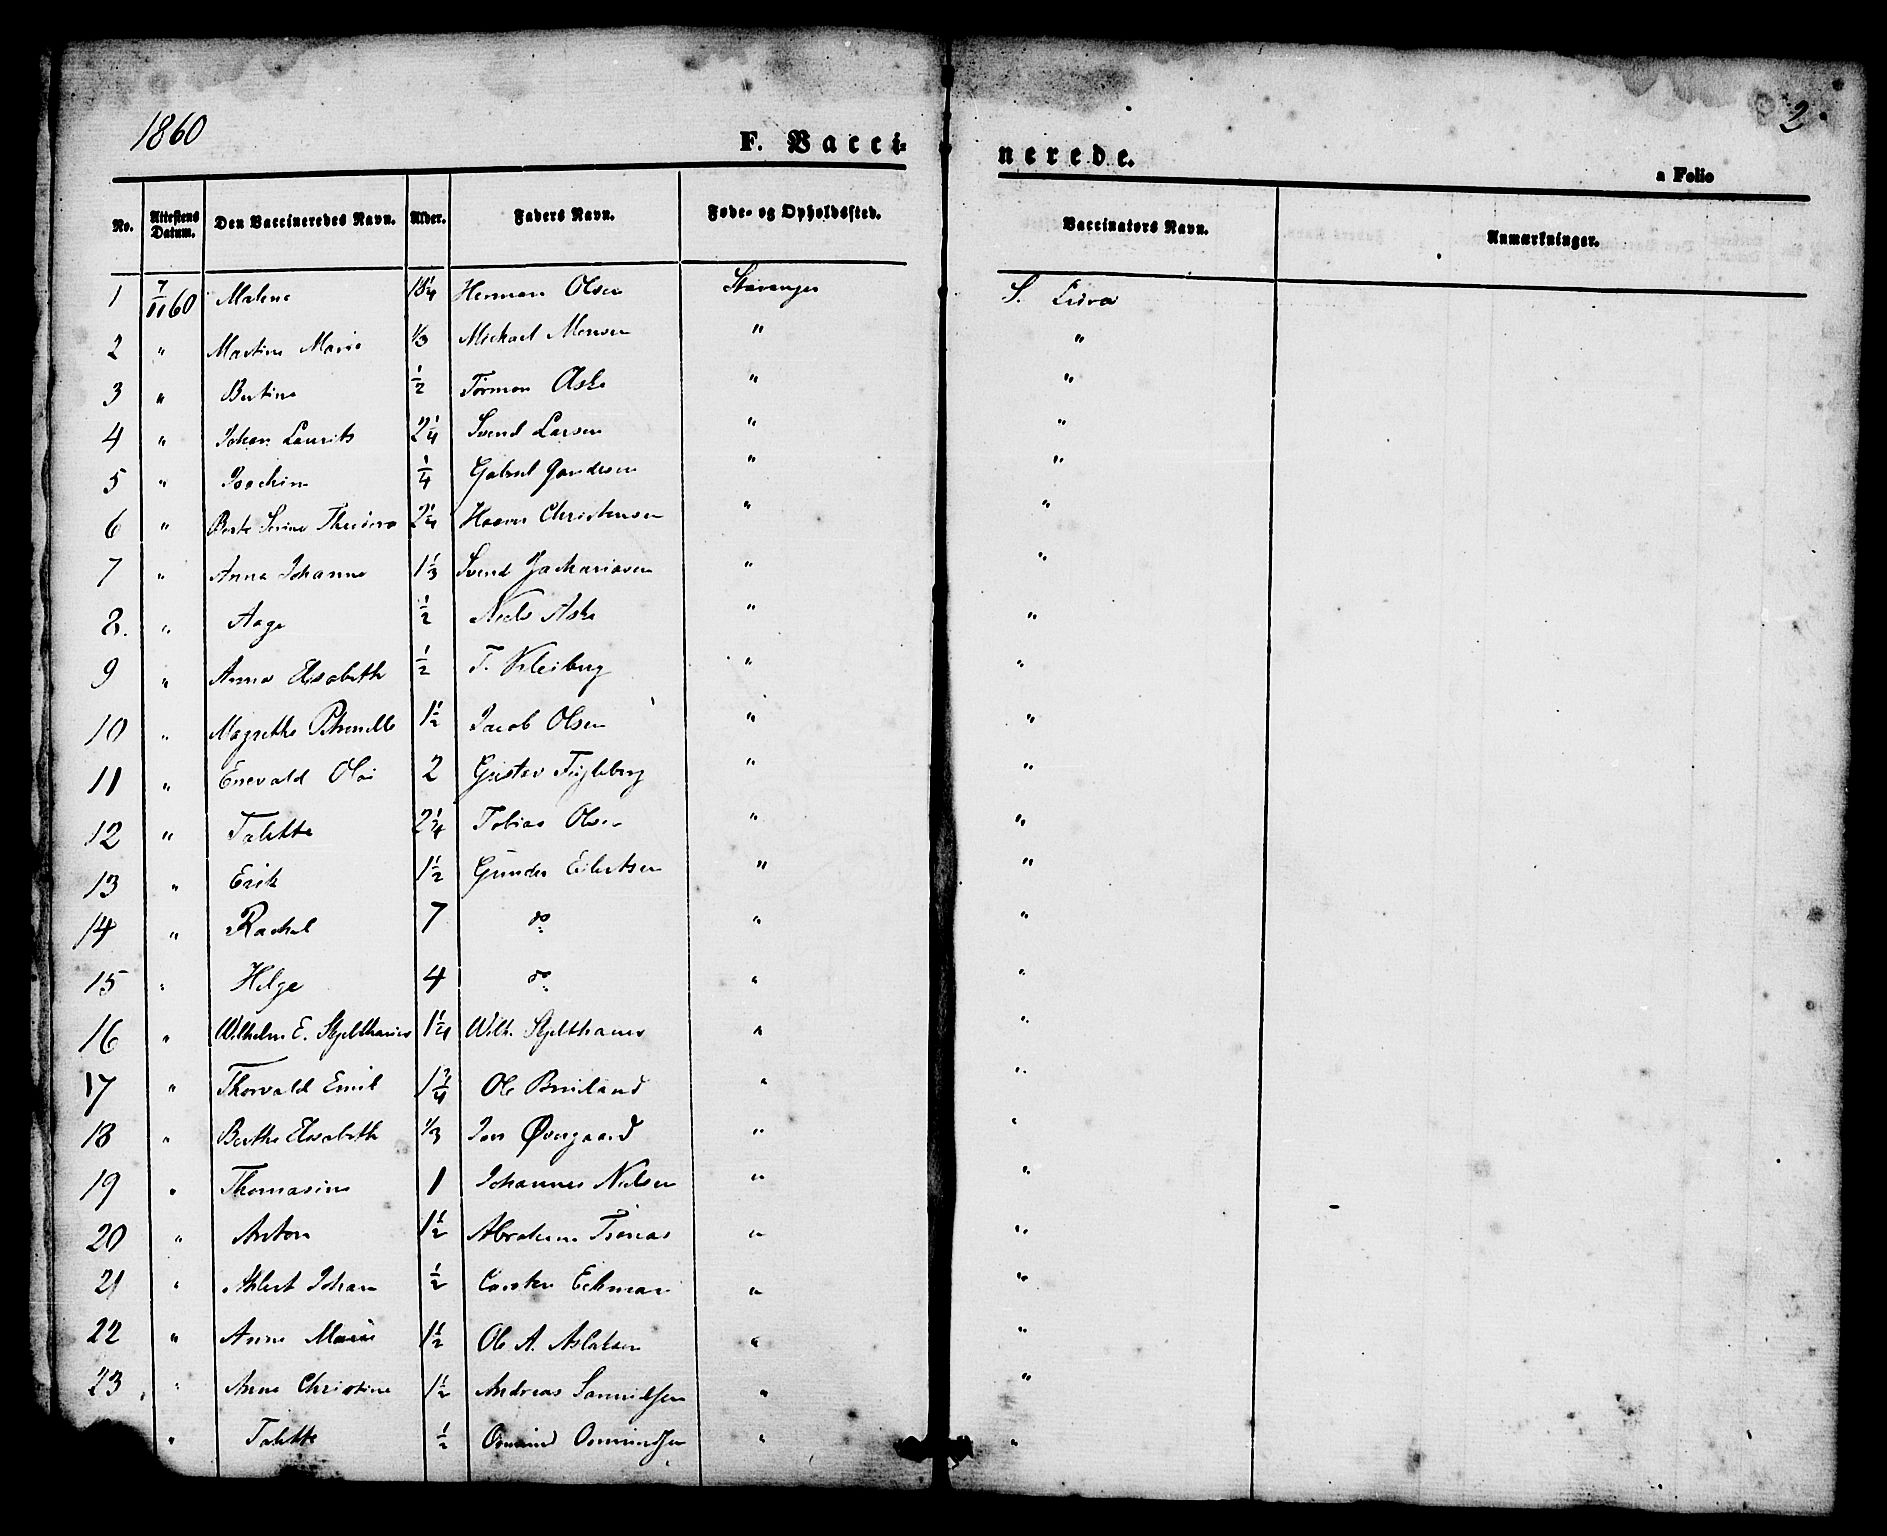 1860
2
F. Vacci-
nerede.
a Folio
No. Attestens Datum. Den Vaccineredes Navn. Alder. Faders Navn. Føde- og Opholdssted. Vaccinators Navn. Anmærkninger.
1 7/11 60 Malene 18 1/4 Herman Olsen Stavanger S.
2 " Martine Marie 1/3 Michael Monsen " "
3 " Bertine 1/2 Tormon Aske " "
4 " Johan Laurits 2 1/4 Svend Larsen " "
5 " Joachim 1/4 Gabriel " "
6 " Berte Serine 2 1/4 Haaver Christensen " "
7 " Anna Johanne 1 1/3 Svend Zachariasen " "
8. " Aage 1/2 Niels Aske " "
9 " Anna Elisabeth 1/2 T. Kleiberg " "
10 " Magrethe Petronelle 1 1/2 Jacob Olsen " "
11 " Enevald Olai 2 Gustav Fugleberg " "
12 " Talette 2 1/4 Tobias Olsen " "
13 " Erik 1 1/2 Gunder Eilertsen " "
14 " Rachel 7 do " "
15 " Helge 4 do " "
16 " Wilhelm E. 1 1/4 Wilh. " "
17 " Thorvald Emil 1 3/4 Ole " "
18 " Berthe Elisabeth 1/3 Jens Øvergaard " "
19 " Thomasine 1 Johannes Nielsen " "
20 " Anton 1 1/2 Abraham " "
21 " Ahlert Johan 1/2 Carsten Eckman " "
22 " Anne Marie 1 1/2 Ole A. Aslaksen " "
23 " Anne Christine 1 1/2 Andreas Samuelsen " "
" Talette 1/2 Osmund Osmundsen " "